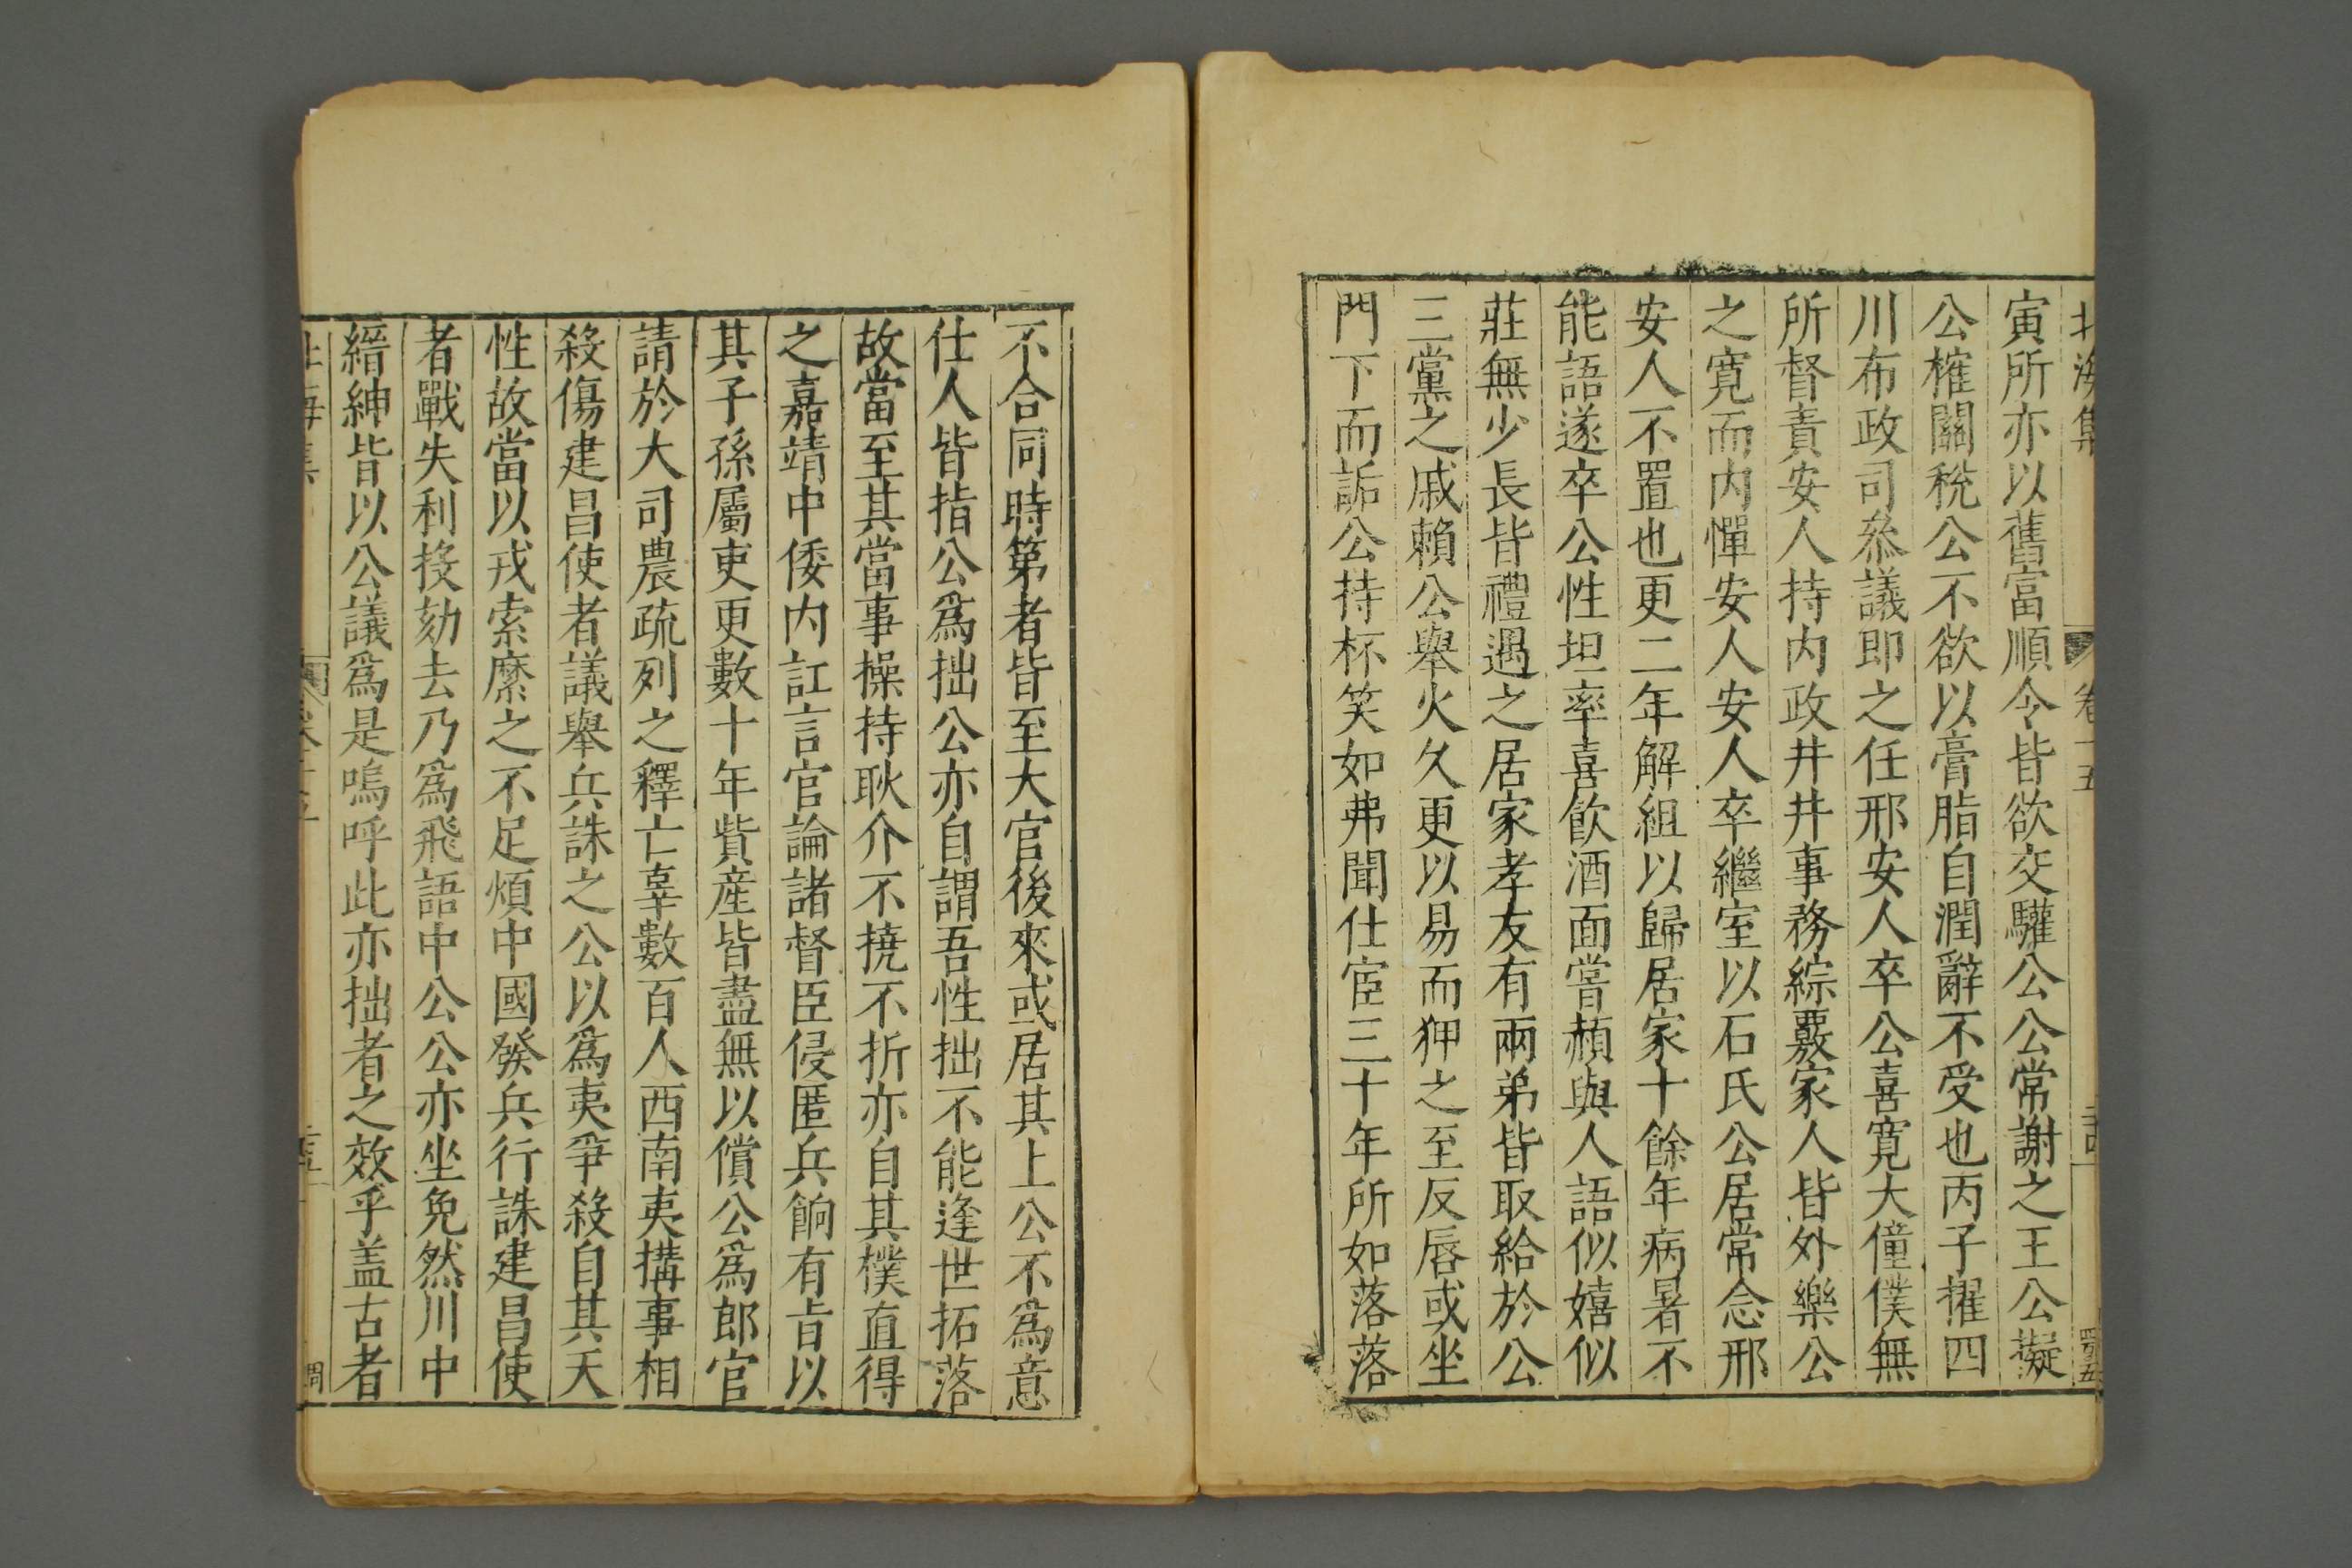 北海集 卷十五 三四 四百五
寅所亦以舊富順令皆欲交驩公公常謝之王公擬
公榷關稅公不欲以膏脂自潤辭不受也丙子擢四
川布政司叅議即之任邢安人卒公喜寛大僮僕無
所督責安人持内政井井事務綜覈家人皆外樂公
之寛而内憚安人安人卒繼室以石氏公居常念邢
安人不置也更二年解組以歸居家十餘年病暑不
能語遂卒公性坦率喜飲酒面嘗頳與人語似嬉似
莊無少長皆禮遇之居家孝友有兩弟皆取給於公
三黨之戚賴公舉火久更以易而狎之至反唇或坐
門下而詬公持杯笑如弗聞仕宦三十年所如落落
不合同時第者皆至大官後來或居其上公不爲意
仕人皆指公爲拙公亦自謂吾性拙不能逢世拓落
故當至其當事操持耿介不撓不折亦自其樸直得
之嘉靖中倭内訌言官論諸督臣侵匿兵餉有㫖以
其子孫屬吏更數十年貲産皆盡無以償公爲郎官
請於大司農疏列之釋亡辜數百人西南夷搆事相
殺傷建昌使者議舉兵誅之公以爲夷爭殺自其天
性故當以戎索縻之不足煩中國發兵行誅建昌使
者戰失利投劾去乃爲飛語中公公亦坐免然川中
縉紳皆以公議爲是嗚呼此亦拙者之效乎盖古者
北海集 卷十五